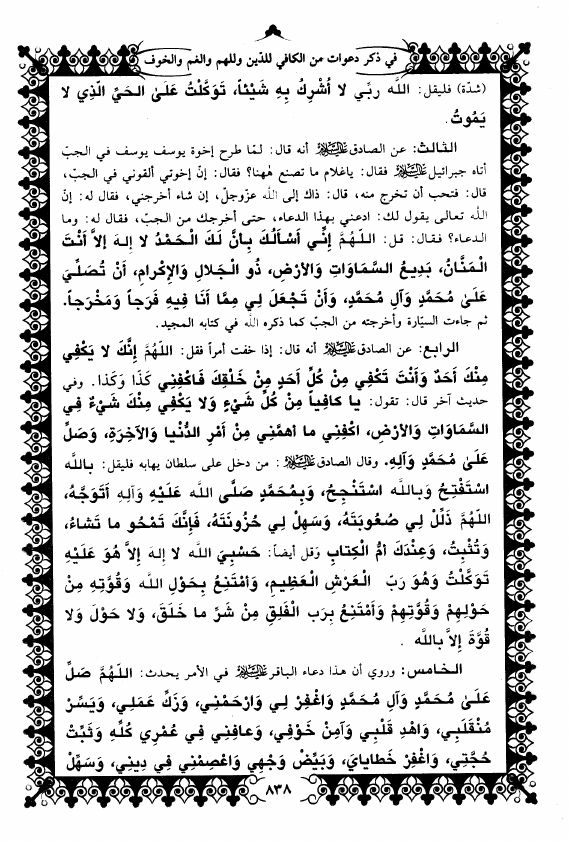 في ذكر دعوات من الكافي للدّين وللهم والغم والخوف
(شدّة) فليقل: اللّه ربّي لا أُشْرِكُ بِهِ شَيْئاً، تَوَكَّلْتُ عَلىٰ الحَيِّ الّذِي لا
يَمُوتُ.
الثالث: عن الصادق عليه السلام أنه قال: لمّا طرح إخوة يوسف يوسف في الجبّ
أتاه جبرائيل عليه السلام فقال: ياغلام ما تصنع هٰهنا؟ فقال: إنّ إخوتي ألقوني في الجبّ،
قال: فتحب أن تخرج منه، قال: ذاك إلى اللّه عزّوجلّ، إن شاء أخرجني، فقال له: إنّ
اللّه تعالى يقول لك: ادعني بهذا الدعاء، حتى أخرجك من الجبّ، فقال له: وما
الدعاء؟ فقال: قل: اللَّهُمَّ إِنِّي أَسْأَلُكَ بِأَنَّ لَكَ الْحَمْدُ لا إِلهَ إِلاَّ أَنْتَ
الْمَنَّانُ، بَدِيعُ السَّمَاوَاتِ وَالأَرْضِ، ذُو الْجَلالِ وَالإِكْرامِ، أَنْ تُصَلِّيَ
عَلىٰ مُحَمَّدٍ وَآلِ مُحَمَّدٍ، وَأَنْ تَجْعَلَ لِي مِمَّا أَنَا فِيهِ فَرَجاً وَمَخْرَجاً.
ثم جاءت السيّارة وأخرجته من الجبّ كما ذكره اللّه في كتابه المجيد.
الرابع: عن الصادق عليه السلام أنه قال: إذا خفت أمراً فقل: اللَّهُمَّ إِنَّكَ لا يَكْفِي
مِنْكَ أَحَدٌ وَأَنْتَ تَكْفِي مِنْ كُلِّ أَحَدٍ مِنْ خَلْقِكَ فَاكْفِنِي كَذَا وَكَذا. وفي
حديث آخر قال: تقول: يا كافِياً مِنْ كُلِّ شَيْءٍ وَلا يَكْفِي مِنْكَ شَيْءٌ فِي
السَّمَاوَاتِ وَالأَرْضِ، اكْفِنِي ما أَهَمَّنِي مِنْ أَمْرِ الدُّنْيا وَالآخِرَةِ، وَصَلِّ
عَلىٰ مُحَمَّدٍ وَآلِهِ. وقال الصادق عليه السلام: من دخل على سلطان يهابه فليقل: بِاللّه
اسْتَفْتِحُ وَبِاللّه اسْتَنْجِحُ، وَبِمُحَمَّدٍ صَلَّى اللّه عَلَيْهِ وَآلِهِ أَتَوَجَّهُ،
اللَّهُمَّ ذَلِّلْ لِي صُعُوبَتَهُ، وَسَهِّلْ لِي حُزُونَتَهُ، فَإِنَّكَ تَمْحُو ما تَشاءُ،
وَتُثْبِتُ، وَعِنْدَكَ أُمُّ الْكِتابِ وقل أيضاً: حَسْبِيَ اللّه لا إِلهَ إِلاَّ هُوَ عَلَيْهِ
تَوَكَّلْتُ وَهُوَ رَبُّ الْعَرْشِ الْعَظِيمِ، وَأَمْتَنِعُ بِحَوْلِ اللّه وَقُوَّتِهِ مِنْ
حَوْلِهِمْ وَقُوَّتِهِمْ وَأَمْتَنِعُ بِرَبِ الْفَلَقِ مِنْ شَرِّ ما خَلَقَ، وَلا حَوْلَ وَلا
قُوَّةَ إِلاَّ بِاللّه .
الخامس: وروي أن هذا دعاء الباقر عليه السلام في الأمر يحدث: اللَّهُمَّ صَلِّ
عَلىٰ مُحَمَّدٍ وَآلِ مُحَمَّدٍ وَاغْفِرْ لِي وَارْحَمْنِي، وَزَكِّ عَمَلِي، وَيَسِّرْ
مُنْقَلَبِي، وَاهْدِ قَلْبِي وَآمِنْ خَوْفِي، وَعافِنِي فِي عُمْرِي كُلِّهِ وَثَبِّتْ
حُجَّتِي، وَاغْفِرْ خَطايايَ، وَبَيِّضْ وَجْهِي وَاعْصِمْنِي فِي دِينِي، وَسَهِّلْ
٨٣٨